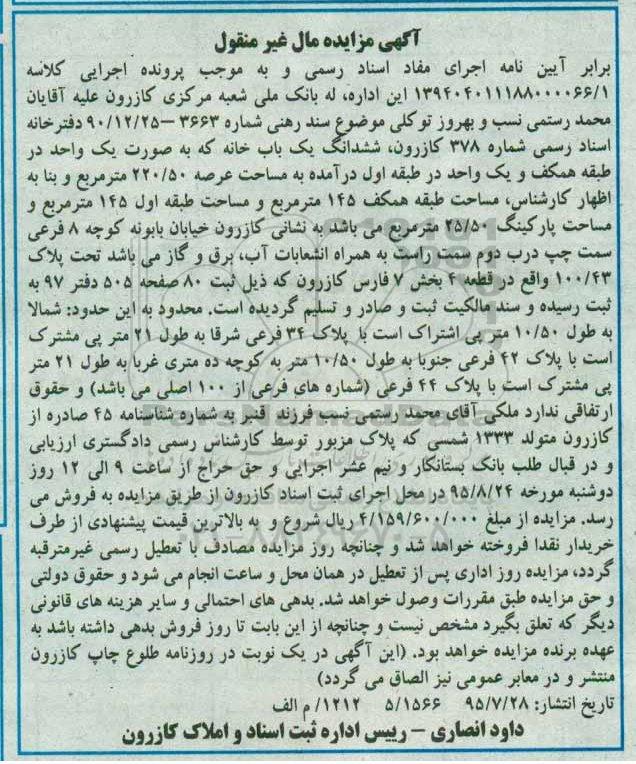 آگهی مزایده مال غیر منقول
برابر آیین نامه اجرای مفاد اسناد رسمی و به موجب پرونده اجرایی کلاسه
۱۳۹۴۰۴۰۱۱۱۸۸۰۰۰۰۶۶/۱ این اداره، له بانک ملی شعبه مرکزی کازرون علیه آقایان
محمد رستمی نسب و بهروز توکلی موضوع سند رهنی شماره ۳۶۶۳ –۹۰/۱۲/۲۵ دفترخانه
اسناد رسمی شماره ۳۷۸ کازرون، ششدانگ یک باب خانه که به صورت یک واحد در
طبقه همکف و یک واحد در طبقه اول درآمده به مساحت عرصه ۲۲۰/۵۰ مترمربع و بنا به
اظهار کارشناس، مساحت طبقه همکف ۱۴۵ مترمربع و مساحت طبقه اول ۱۴۵ مترمربع و
مساحت پارکینگ ۲۵/۵۰ مترمربع می باشد به نشانی کازرون خیابان بابونه کوچه ۸ فرعی
سمت چپ درب دوم سمت راست به همراه انشعابات آب، برق و گاز می باشد تحت پلاک
۱۰۰/۴۳ واقع در قطعه ۴ بخش ۷ فارس کازرون که ذیل ثبت ۸۰ صفحه ۵۰۵ دفتر ۹۷ به
ثبت رسیده و سند مالکیت ثبت و صادر و تسلیم گردیده است. محدود به این حدود: شمالا
به طول ۱۰/۵۰ متر پی اشتراک است با پلاک ۳۴ فرعی شرقا به طول ۲۱ متر پی مشترک
است با پلاک ۴۲ فرعی جنوبا به طول ۱۰/۵۰ متر به کوچه ده متری غربا به طول ۲۱ متر
پی مشترک است با پلاک ۴۴ فرعی (شماره های فرعی از ۱۰۰ اصلی می باشد) و حقوق
ارتفاقی ندارد ملکی آقای محمد رستمی نسب فرزند قنبر به شماره شناسنامه ۴۵ صادره از
کازرون متولد ۱۳۳۳ شمسی که پلاک مزبور توسط کارشناس رسمی دادگستری ارزیابی
و در قبال طلب بانک بستانکار و نیم عشر اجرایی و حق حراج از ساعت ۹ الی ۱۲ روز
دوشنبه مورخه ۹۵/۸/۲۴ در محل اجرای ثبت اسناد کازرون از طریق مزایده به فروش می
رسد. مزایده از مبلغ ۴/۱۵۹/۶۰۰/۰۰۰ ریال شروع و به بالاترین قیمت پیشنهادی از طرف
خریدار نقدا فروخته خواهد شد و چنانچه روز مزایده مصادف با تعطیل رسمی غیرمترقبه
گردد، مزایده روز اداری پس از تعطیل در همان محل و ساعت انجام می شود و حقوق دولتی
و حق مزایده طبق مقررات وصول خواهد شد. بدهی های احتمالی و سایر هزینه های قانونی
دیگر که تعلق بگیرد مشخص نیست و چنانچه از این بابت تا روز فروش بدهی داشته باشد به
عهده برنده مزایده خواهد بود. (این آگهی در یک نوبت در روزنامه طلوع چاپ کازرون
منتشر و در معابر عمومی نیز الصاق می گردد)
تاریخ انتشار: ۹۵/۷/۲۸ ۵/۱۵۶۶ ۱۲۱۲/ م الف
داود انصاری – رییس اداره ثبت اسناد و املاک کازرون